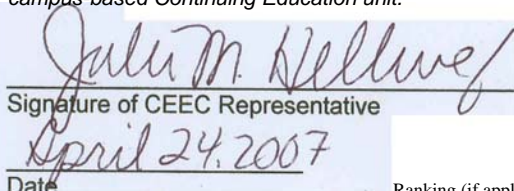 campus-based Continuing Education unit.
Julie M. Hellwe
Signature of CEEC Representative
April 24, 2007
Date
Ranking (if appl